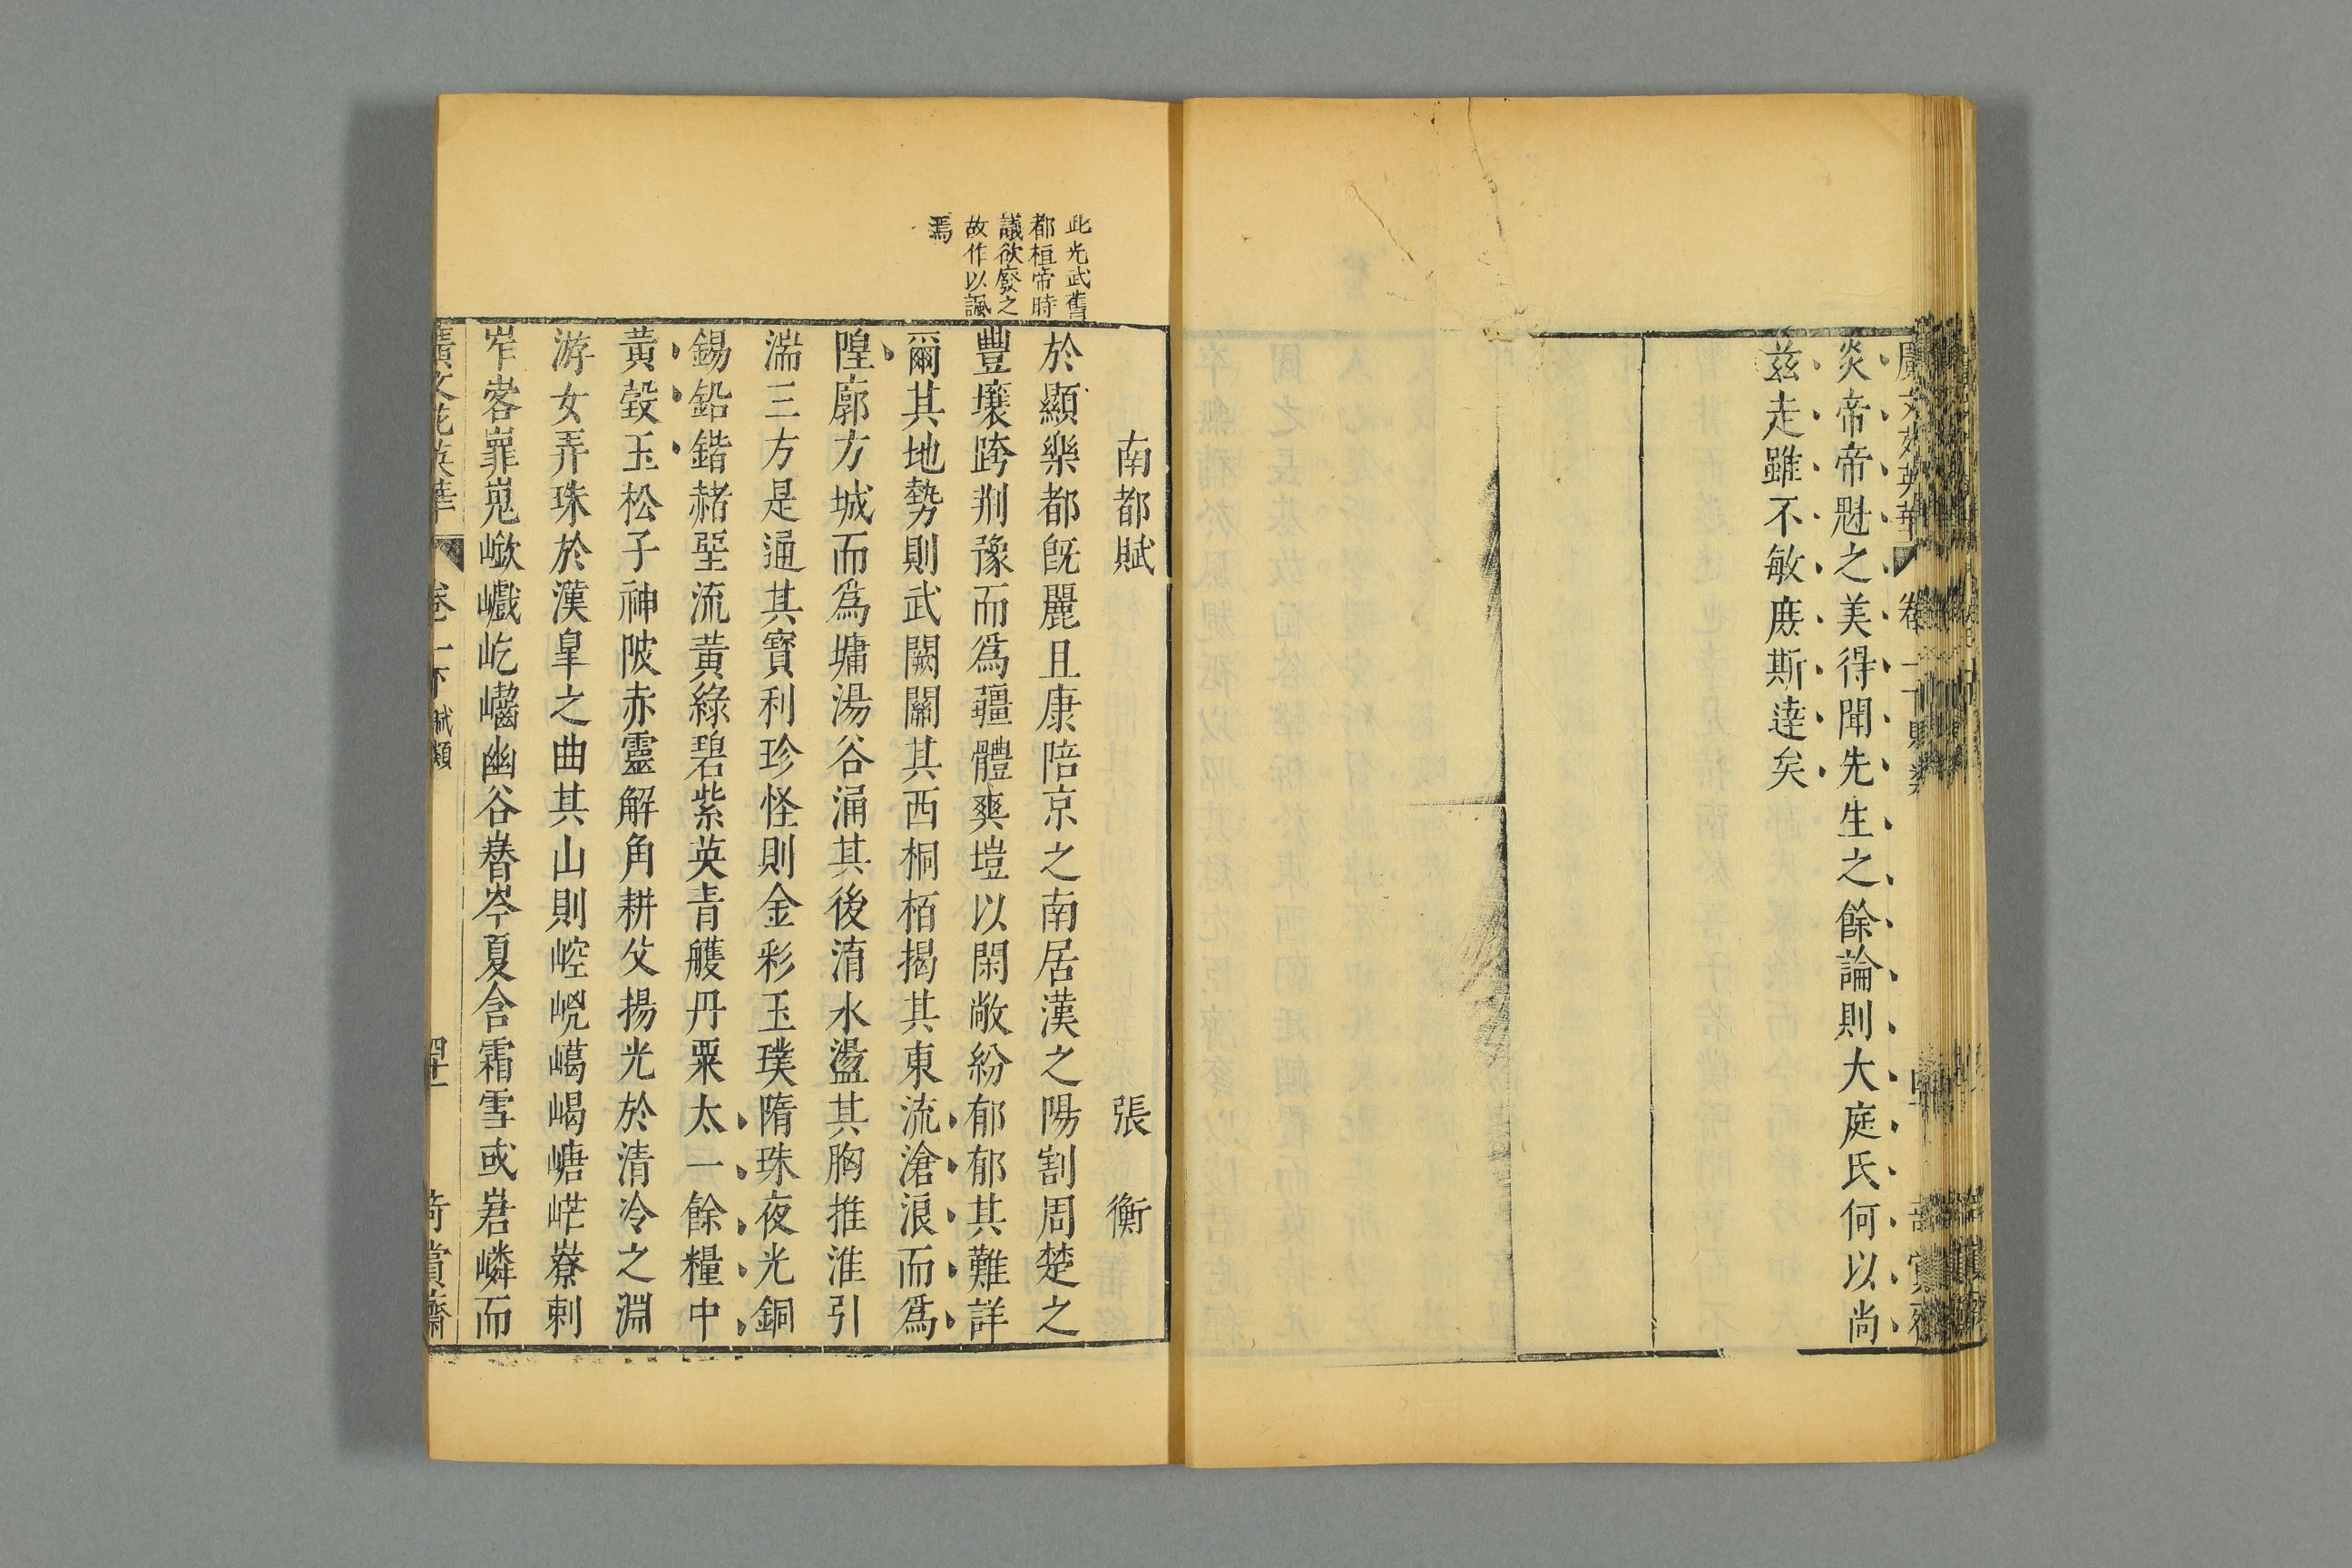 炎帝帝魁之美得聞先生之餘論則大庭氏何以尚
茲走雖不敏庶斯達矣
此光武舊
都桓帝時
議欲廢之
故作以諷
焉
南都賦 張衡
於顯樂都旣麗且康陪京之南居漢之陽割周楚之
豐壤跨荆豫而爲疆體爽塏以閑敞紛郁郁其難詳
爾其地勢則武闕關其西桐栢揭其東流滄浪而爲
隍廓方城而爲墉湯谷涌其後淯水盪其胸推淮引
湍三方是通其寶利珍怪則金彩玉璞隋珠夜光銅
錫鉛鍇赭堊流黃綠碧紫英青雘丹粟太一餘糧中
黃瑴玉松子神陂赤靈解角耕父揚光於清冷之淵
游女弄珠於漢皐之曲其山則崆㟅嶱嵑嵣㟐嶚剌
岝㟯嶊嵬嶔巇屹㠝幽谷嶜岑夏含霜雪或峮嶙而
廣文苑英華 卷一下 賦類 奇賞齋